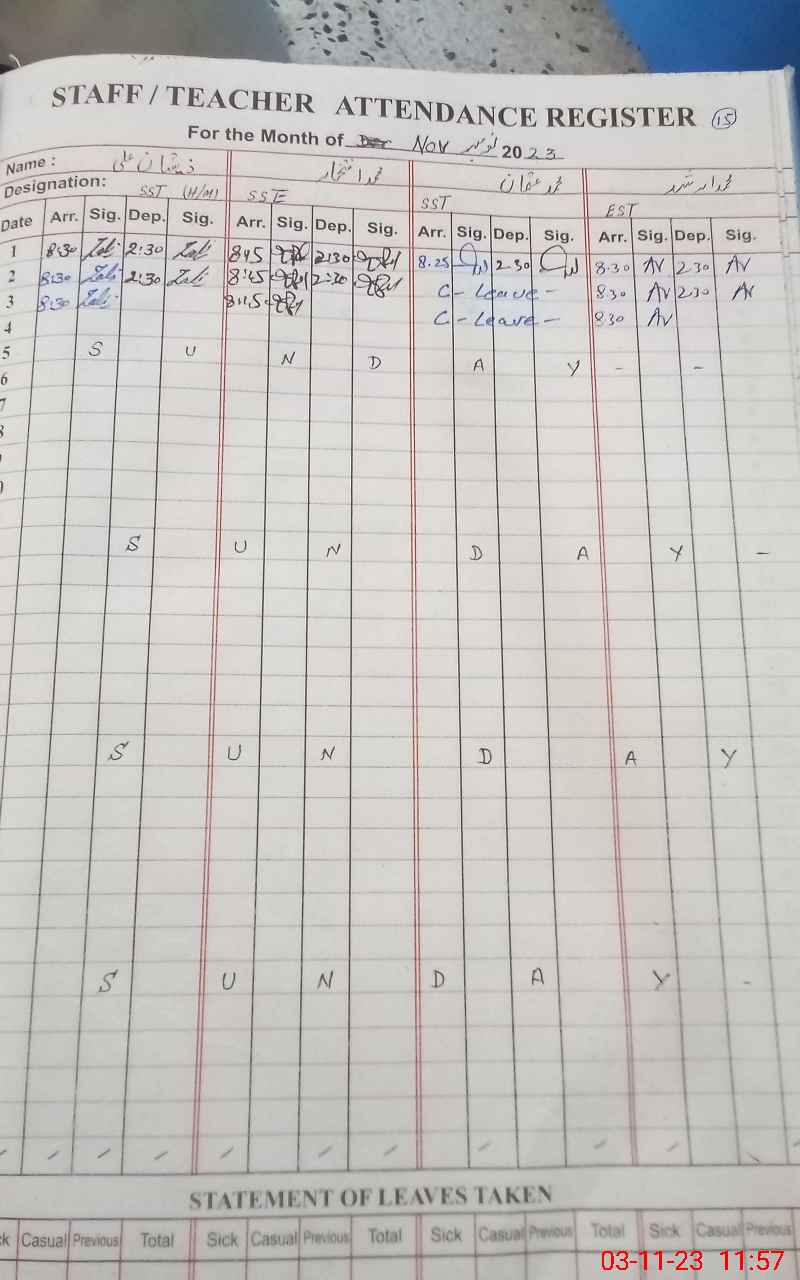 STAFF / TEACHER ATTENDANCE REGISTER 15
For the Month of Nov نومبر 2023
Name : ذیشان علی محمد عثمان
Designation: SST (H/M) SSE SST EST
Date Arr. Sig. Dep. Sig. Arr. Sig. Dep. Sig. Arr. Sig. Dep. Sig. Arr. Sig. Dep. Sig.
1 8:30 2:30 8:45 2:30 8.25 2.30 8.30 AV 2.30 AV
2 8:30 2:30 8:45 2:30 C - Leave - 8.30 AV 2.30 AV
3 8:30 8:45 C - Leave - 8.30 AV
4
5 S U N D A Y - -
6
7
8
S U N D A Y -
S U N D A Y
S U N D A Y -
STATEMENT OF LEAVES TAKEN
ck Casual Previous Total Sick Casual Previous Total Sick Casual Previous Total Sick Casual Previous
03-11-23 11:57